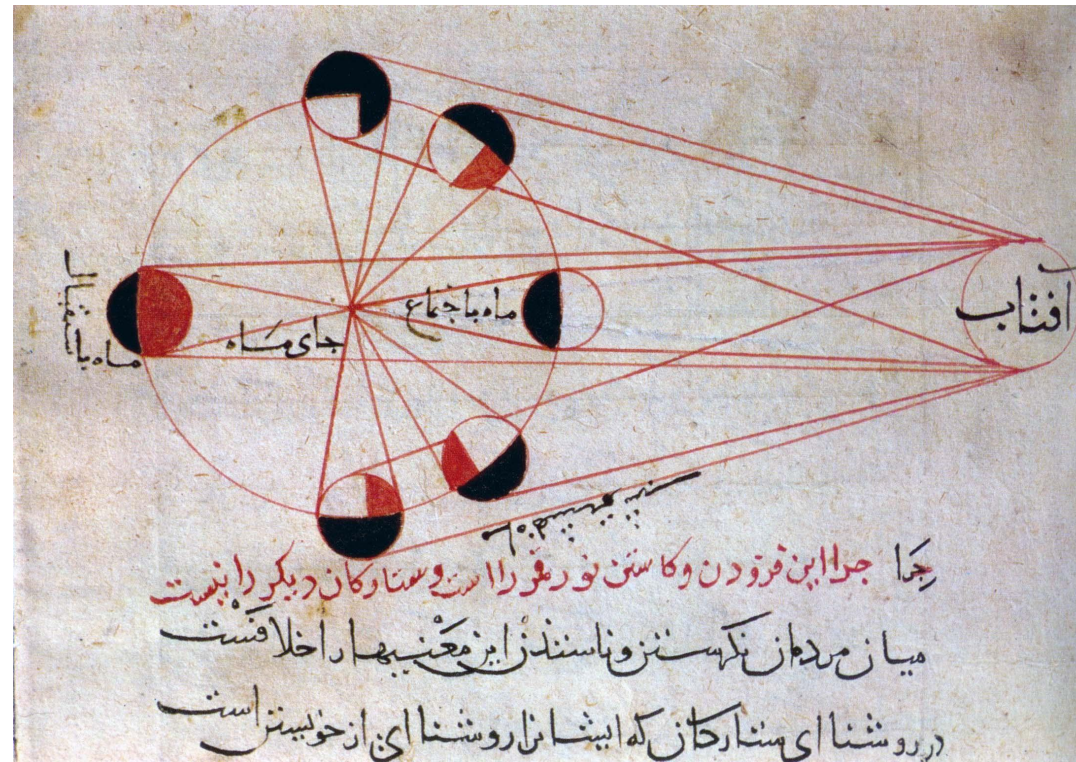 آفتاب
ماه باجتماع
جای ماه
ماه باستقبال
چرا این فزودن و کاستن نور قمر را است و ستارکان دیکر را نیست
میان مردمان نکرستن این را اختلافست
در روشنا ای ستارکان که ایشانرا روشنا ای از خویشتن است